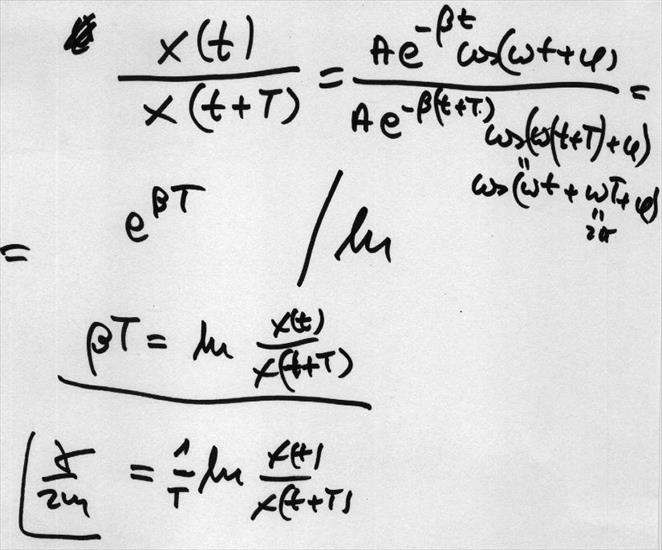 x(t) / x(t+T) = Ae^{-βt} cos(ωt+φ) / Ae^{-β(t+T)} cos(ω(t+T)+φ) =
" cos(ωt + ωT+φ)
" 2π
= e^{βT} / ln
βT = ln x(t) / x(t+T)
γ / 2m = 1/T ln x(t) / x(t+T)